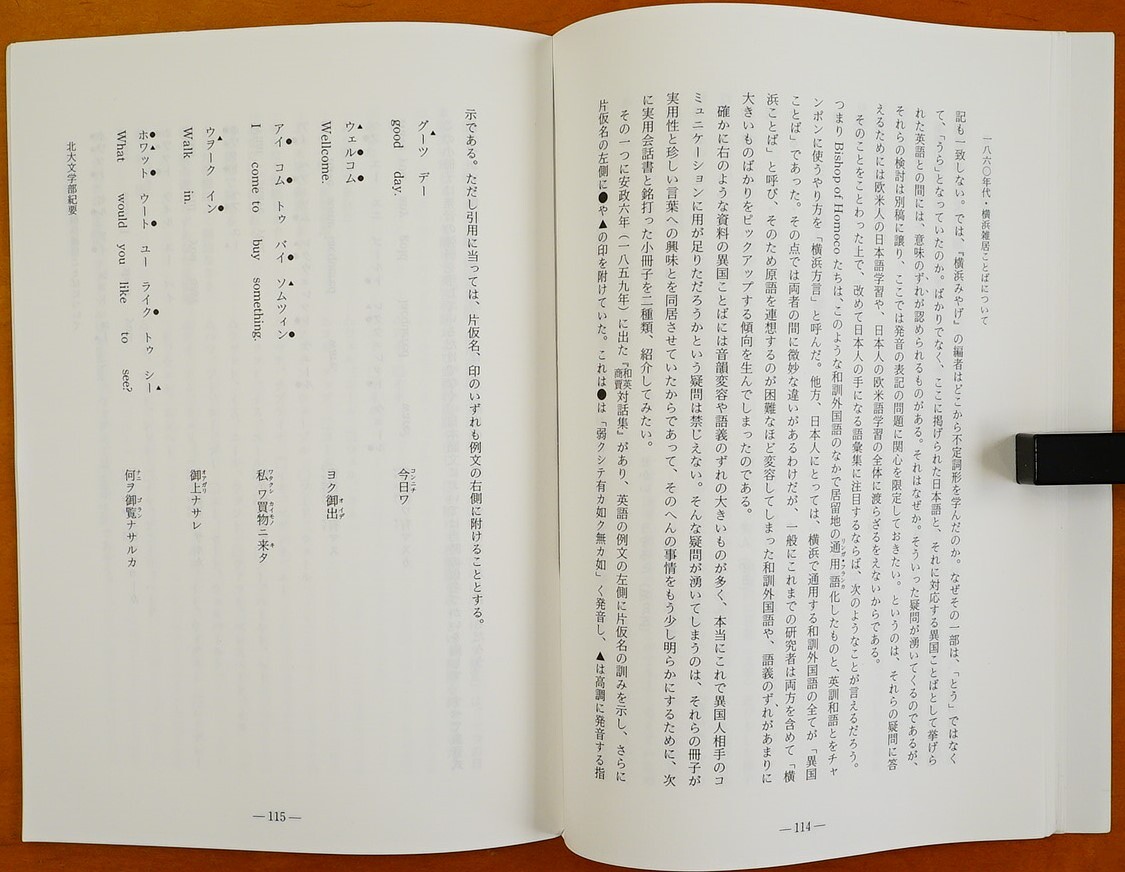 一八六〇年代・横浜雑居ことばについて
記も一致しない。では、「横浜みやげ」の編者はどこから不定詞形を学んだのか。なぜその一部は、「とう」ではなく
て、「うら」となっていたのか。ばかりでなく、ここに掲げられた日本語と、それに対応する異国ことばとして挙げら
れた英語との間には、意味のずれが認められるものがある。それはなぜか。そういった疑問が湧いてくるのであるが、
それらの検討は別稿に譲り、ここでは発音の表記の問題に関心を限定しておきたい。というのは、それらの疑問に答
えるためには欧米人の日本語学習や、日本人の欧米語学習の全体に渡らざるをえないからである。
そのことをことわった上で、改めて日本人の手になる語彙集に注目するならば、次のようなことが言えるだろう。
つまり Bishop of Homoco たちは、このような和訓外国語のなかで居留地の通用語化したものと、英訓和語とをチャ
リンガ・フランカ
ンポンに使うやり方を「横浜方言」と呼んだ。他方、日本人にとっては、横浜で通用する和訓外国語の全てが「異国
ことば」であった。その点では両者の間に微妙な違いがあるわけだが、一般にこれまでの研究者は両方を含めて「横
浜ことば」と呼び、そのため原語を連想するのが困難なほど変容してしまった和訓外国語や、語義のずれがあまりに
大きいものばかりをピックアップする傾向を生んでしまったのである。
確かに右のような資料の異国ことばには音韻変容や語義のずれの大きいものが多く、本当にこれで異国人相手のコ
ミュニケーションに用が足りただろうかという疑問は禁じえない。そんな疑問が湧いてしまうのは、それらの冊子が
実用性と珍しい言葉への興味とを同居させていたからであって、そのへんの事情をもう少し明らかにするために、次
に実用会話書と銘打った小冊子を二種類、紹介してみたい。
その一つに安政六年(一八五九年)に出た『和英商賈対話集』があり、英語の例文の左側に片仮名の訓みを示し、さらに
片仮名の左側に●や▲の印を附けていた。これは●は「弱クシテ有カ如ク無カ如」く発音し、▲は高調に発音する指
—114—
示である。ただし引用に当っては、片仮名、印のいずれも例文の右側に附けることとする。
グーツ デー
▲
good day.
今日ワ
コンニチ
ウェルコム
▲●●
Wellcome.
ヨク御出
オイデ
アイ コム トゥ バイ ソムツィン
●●●▲●
I come to buy something.
私ワ買物ニ来タ
ワタクシ カイモノ キ
ウヲーク イン
▲●
Walk in.
御上ナサレ
オアガリ
ホワット ウート ユー ライク トゥ シー
●▲●●●▲
What would you like to see?
何ヲ御覧ナサルカ
ナニ ゴラン
北大文学部紀要
—115—